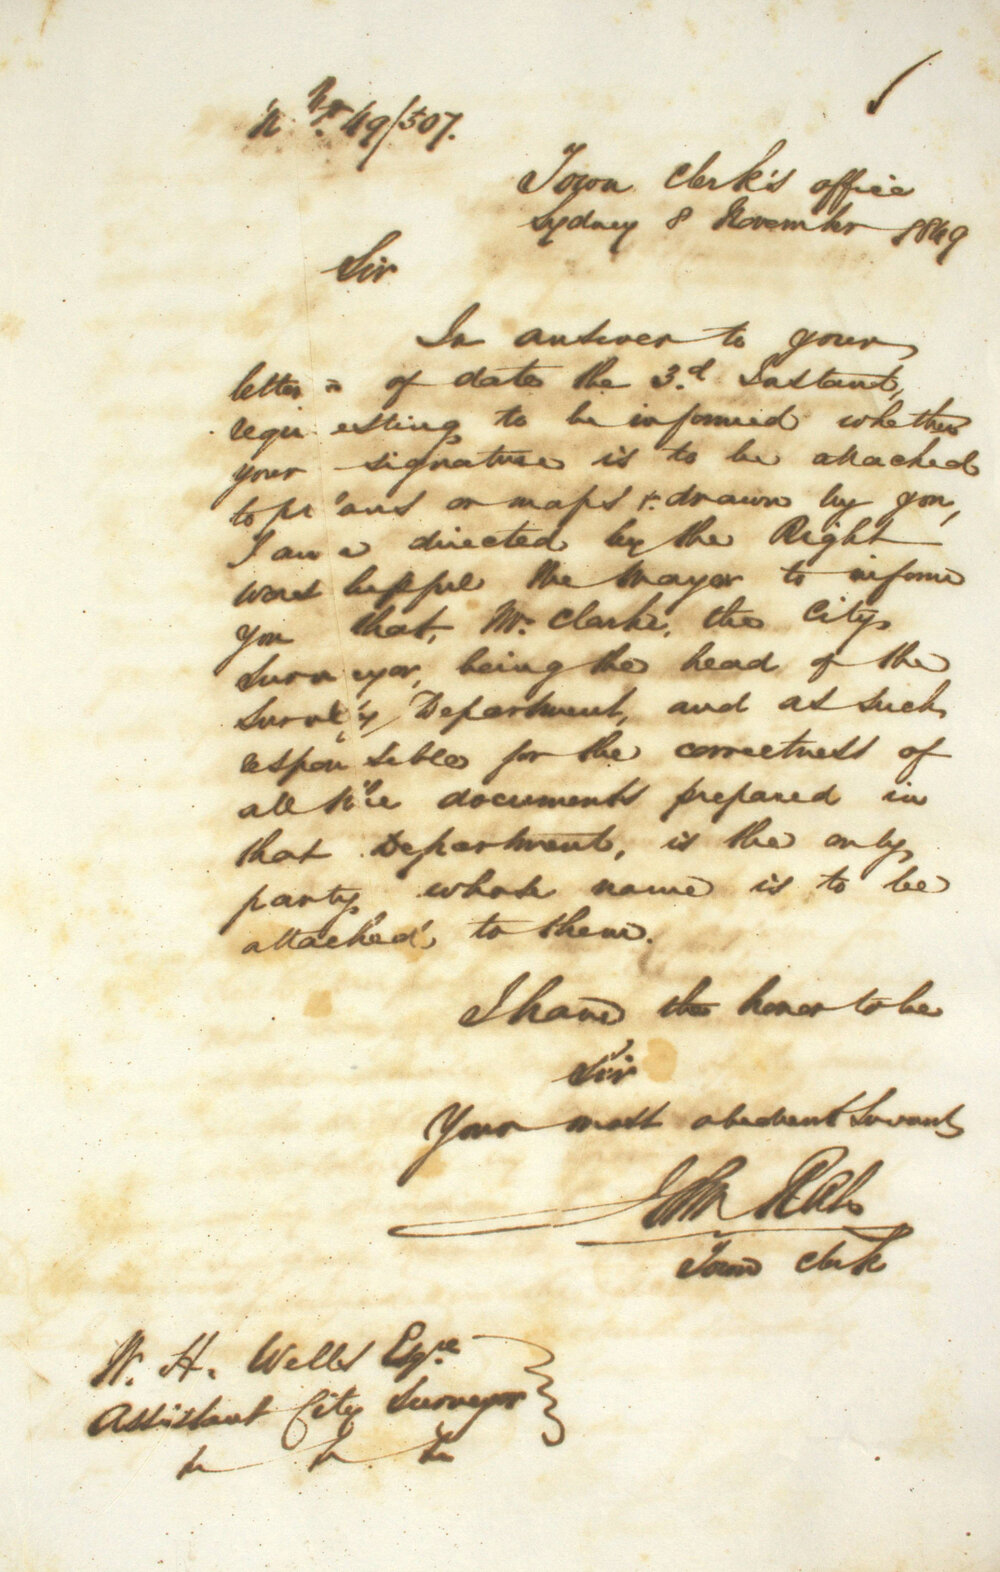 No. 49/507.
Town Clerk's office
Sydney 8 November 1849
Sir
In answer to your
letter of date the 3.d Instant,
requesting to be informed whether
your signature is to be attached
to plans or maps &. drawn by you,
I am directed by the Right
Worshipful the Mayor to inform
you that, Mr. Clarke, the City
Surveyor, being the head of the
Survey Department, and as such
responsible for the correctness of
all the documents prepared in
that Department, is the only
party whose name is to be
attached to them.
I have the honor to be
Sir
Your most obedient Servant
John
Town Clerk
W. H. Wells Esqre
Assistant City Surveyor